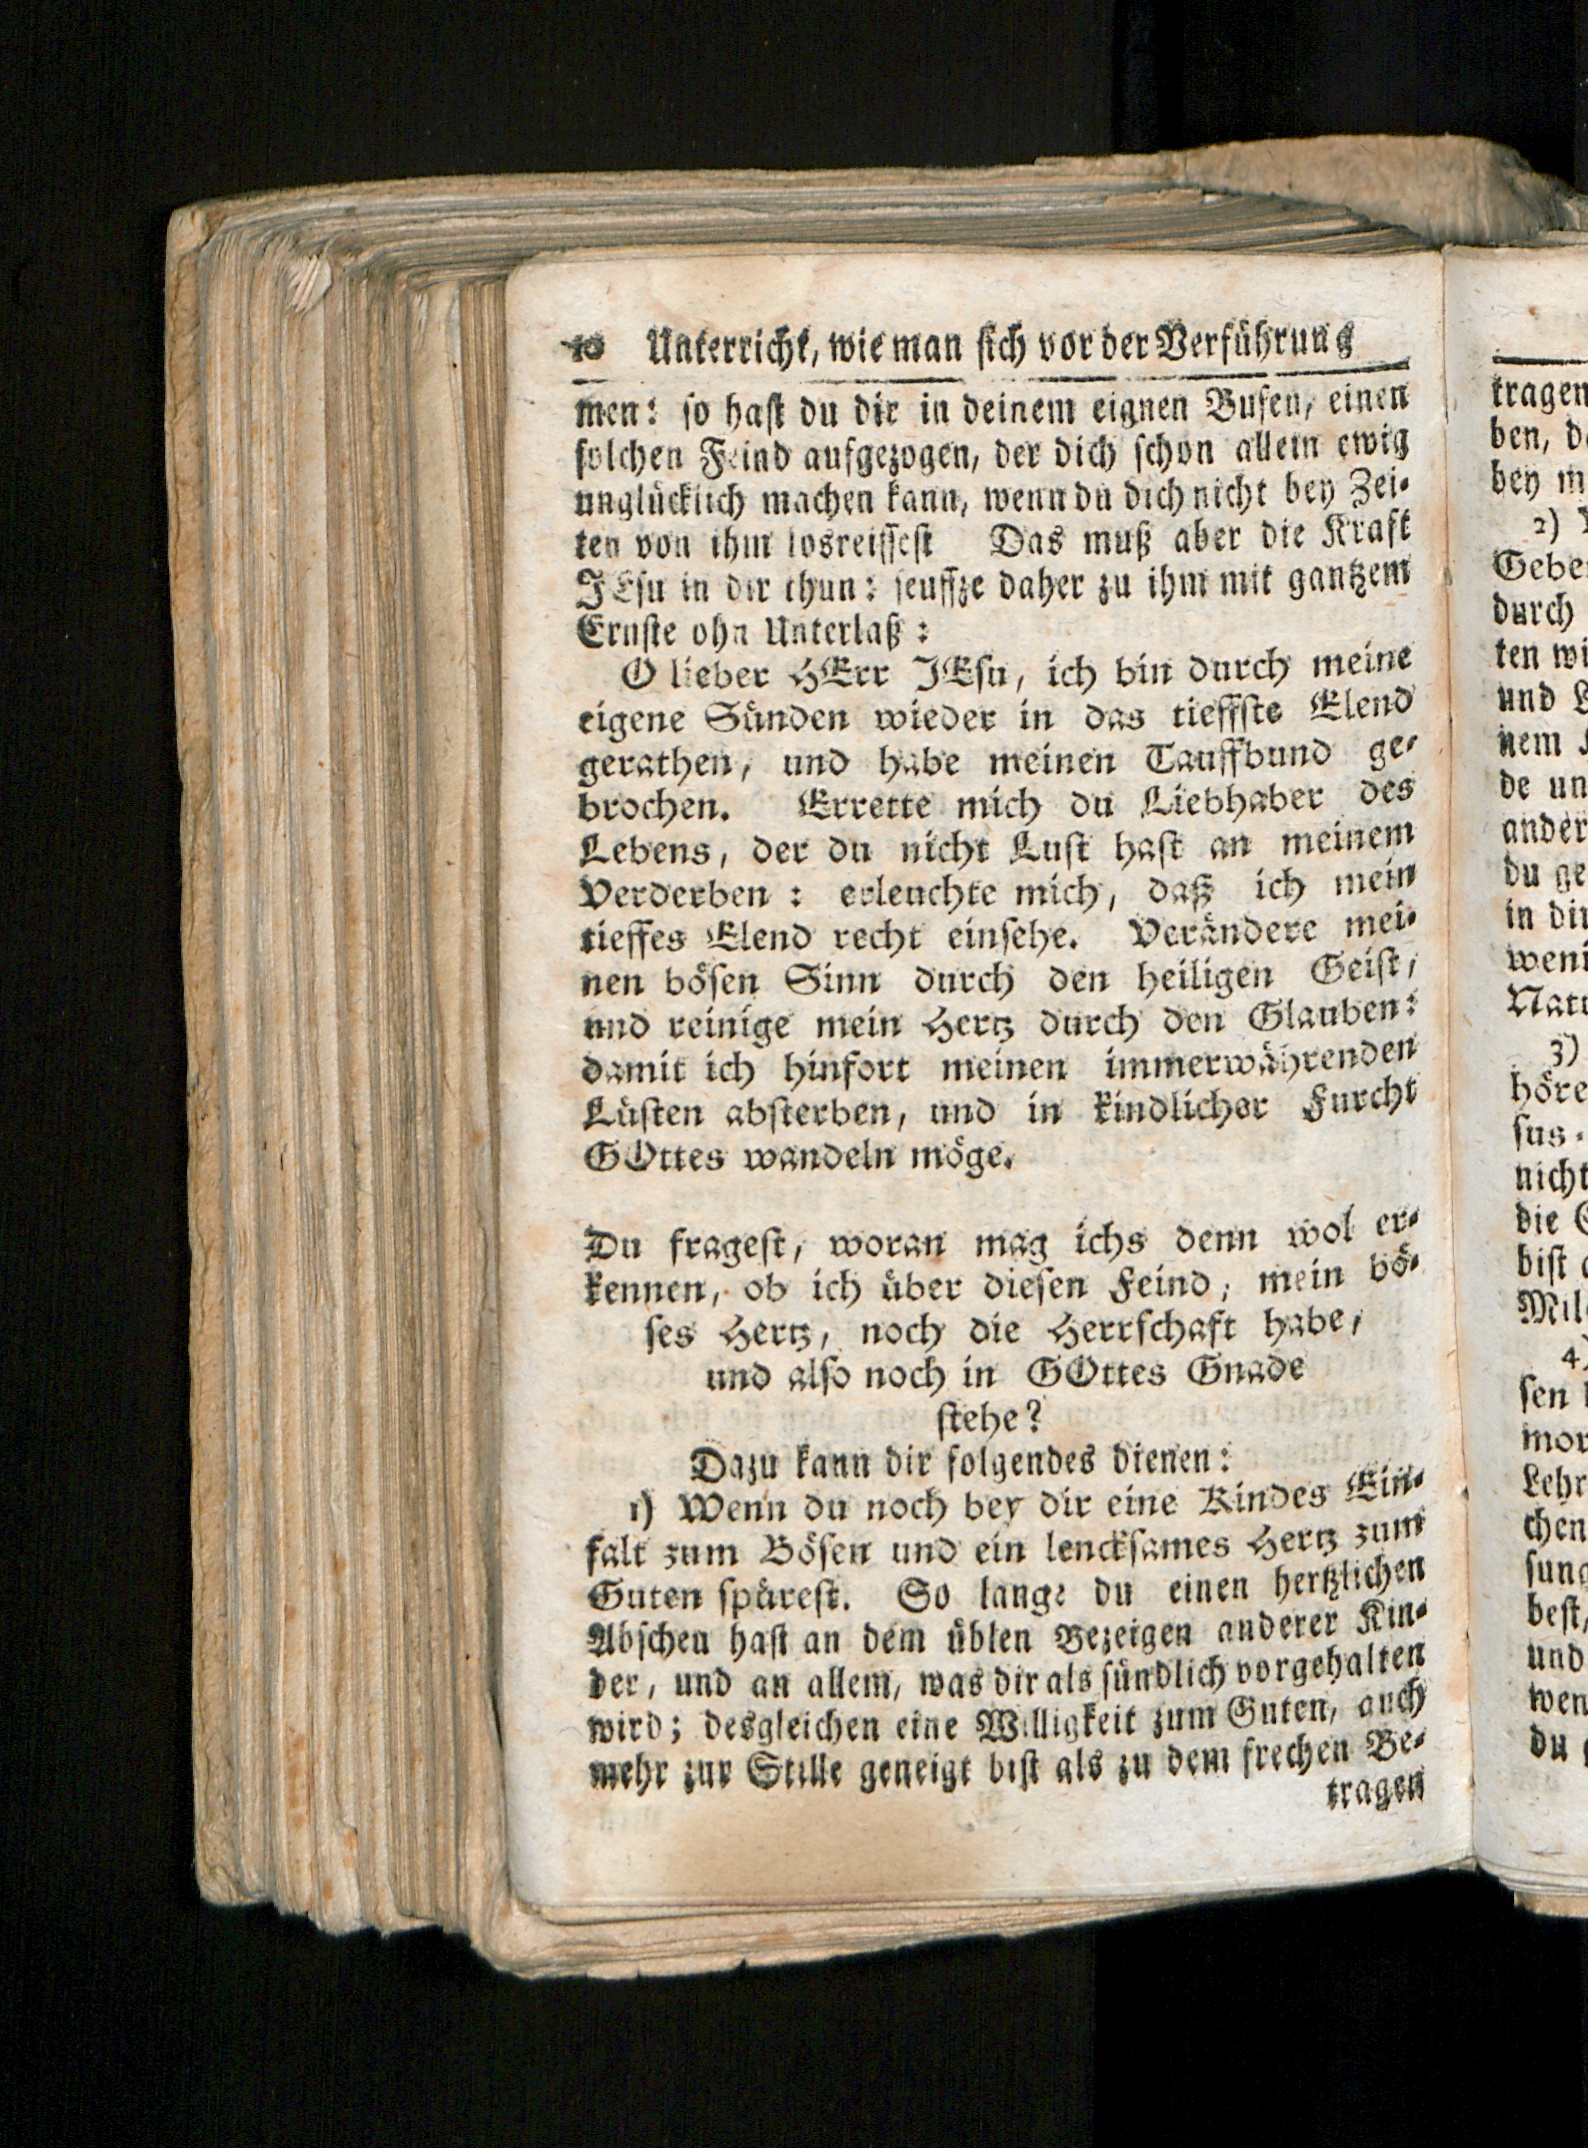 10 Unterricht, wie man sich vor der Verführung
men: so hast du dir in deinem eignen Busen, einen
solchen Feind aufgezogen, der dich schon allein ewig
unglücklich machen kann, wenn du dich nicht bey Zei-
ten von ihm losreissest Das muß aber die Kraft
JEsu in dir thun: seuffze daher zu ihm mit gantzem
Ernste ohn Unterlaß:
O lieber HErr JEsu, ich bin durch meine
eigene Sünden wieder in das tieffste Elend
gerathen, und habe meinen Tauffbund ge-
brochen. Errette mich du Liebhaber des
Lebens, der du nicht Lust hast an meinem
Verderben: erleuchte mich, daß ich mein
tieffes Elend recht einsehe. Verändere mei-
nen bösen Sinn durch den heiligen Geist,
und reinige mein Hertz durch den Glauben:
damit ich hinfort meinen immerwährenden
Lüsten absterben, und in kindlicher Furcht
GOttes wandeln möge.
Du fragest, woran mag ichs denn wol er-
kennen, ob ich über diesen Feind, mein bö-
ses Hertz, noch die Herrschaft habe,
und also noch in GOttes Gnade
stehe?
Dazu kann dir folgendes dienen:
1) Wenn du noch bey dir eine Kindes Ein-
falt zum Bösen und ein lencksames Hertz zum
Guten spürest. So lange du einen hertzlichen
Abscheu hast an dem üblen Bezeigen anderer Kin-
der, und an allem, was dir als sündlich vorgehalten
wird; desgleichen eine Willigkeit zum Guten, auch
mehr zur Stille geneigt bist als zu dem frechen Be-
tragen
tragen
ben,
bey
2)
durch
ten
und
nem
de
du
in
3)
sus-
nicht
die
bist
4)
sen
und
du